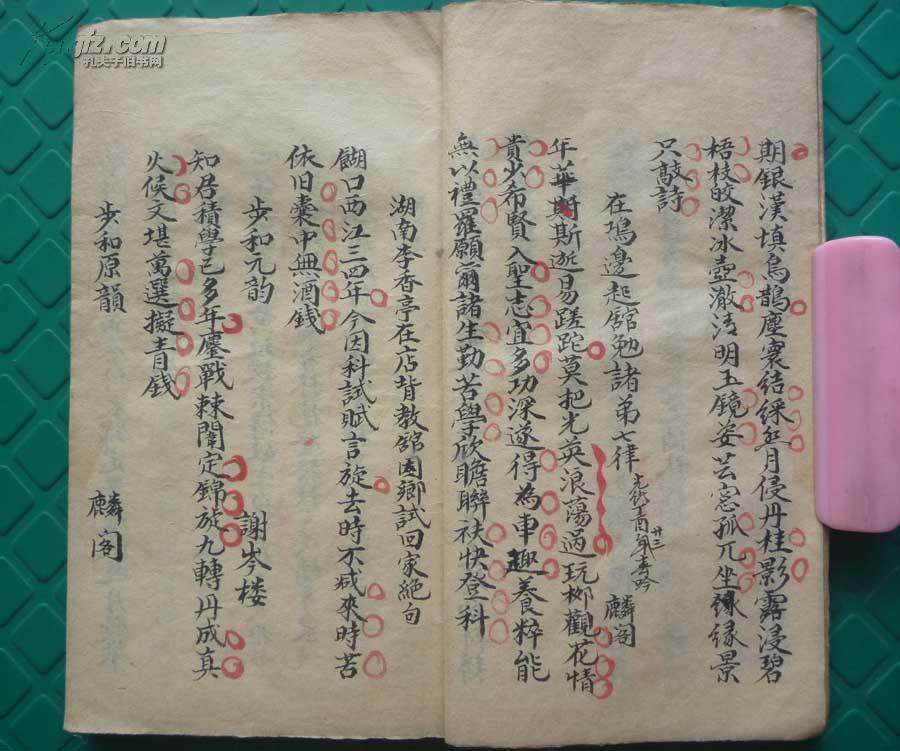 期銀漢填烏鵲塵寰结綵無月侵丹桂影露浸碧
梧枝皎潔冰壺澈清明玉镜姿芸窓孤兀坐緣景
只敲詩
在鴻邊起舘勉諸弟七律 光緒丁酉年廿三春吟 麟阁
年華斯逝易蹉跎莫把光英浪蕩過玩柳觀花情
貴少希賢入聖志宜多功深遂得為車趣養粹能
無以禮羅願爾諸生勤苦學欣瞻聯袂快登科
湖南李香亭在店背教舘因鄉試回家絕句
餬口西江三四年今因科試賦言旋去時不减來時苦
依旧囊中無酒钱
步和元韵 謝岑楼
知君積學已多年鏖戰棘闈定錦旋九轉丹成真
火候文堪萬選擬青錢
步和原韻 麟阁
kongfz.com
孔夫子旧书网